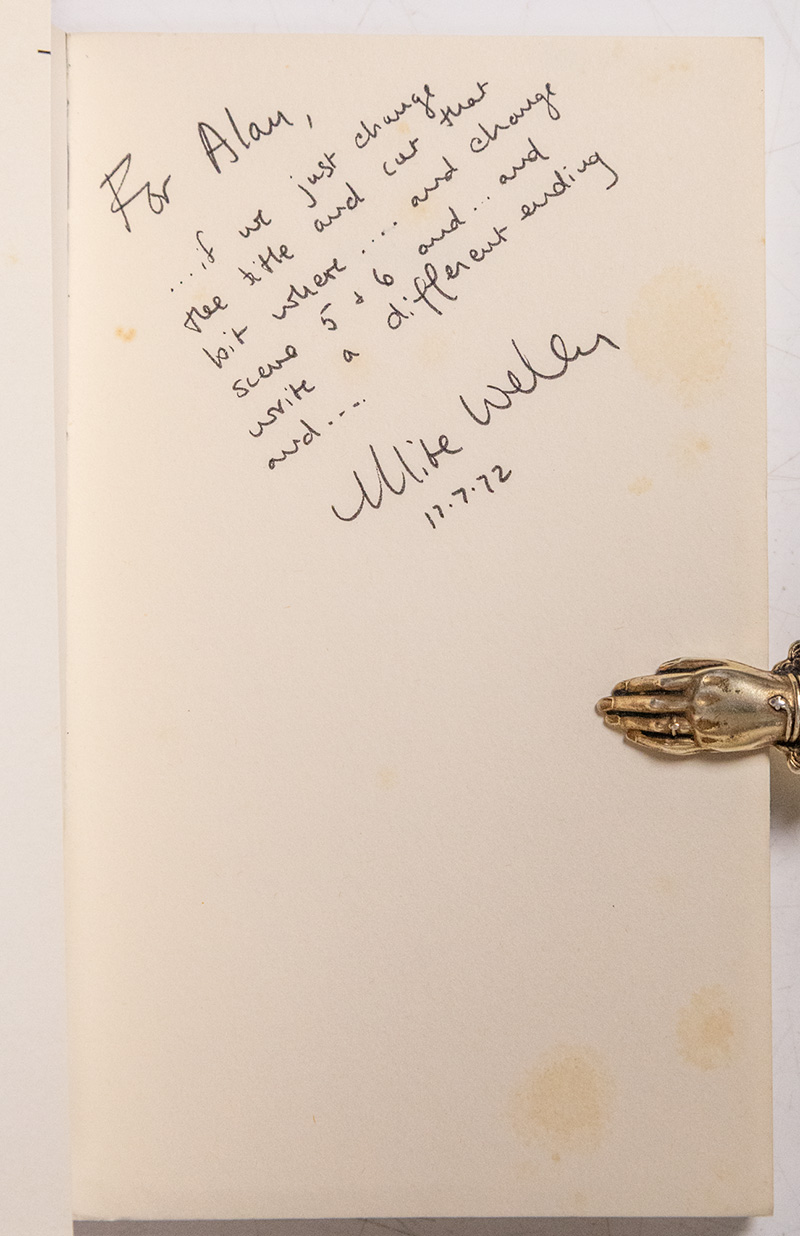 For Alan,
....if we just change
the title and cut that
bit where .... and change
scene 5 & 6 and... and
write a different ending
and....
Mike Weller
17.7.72